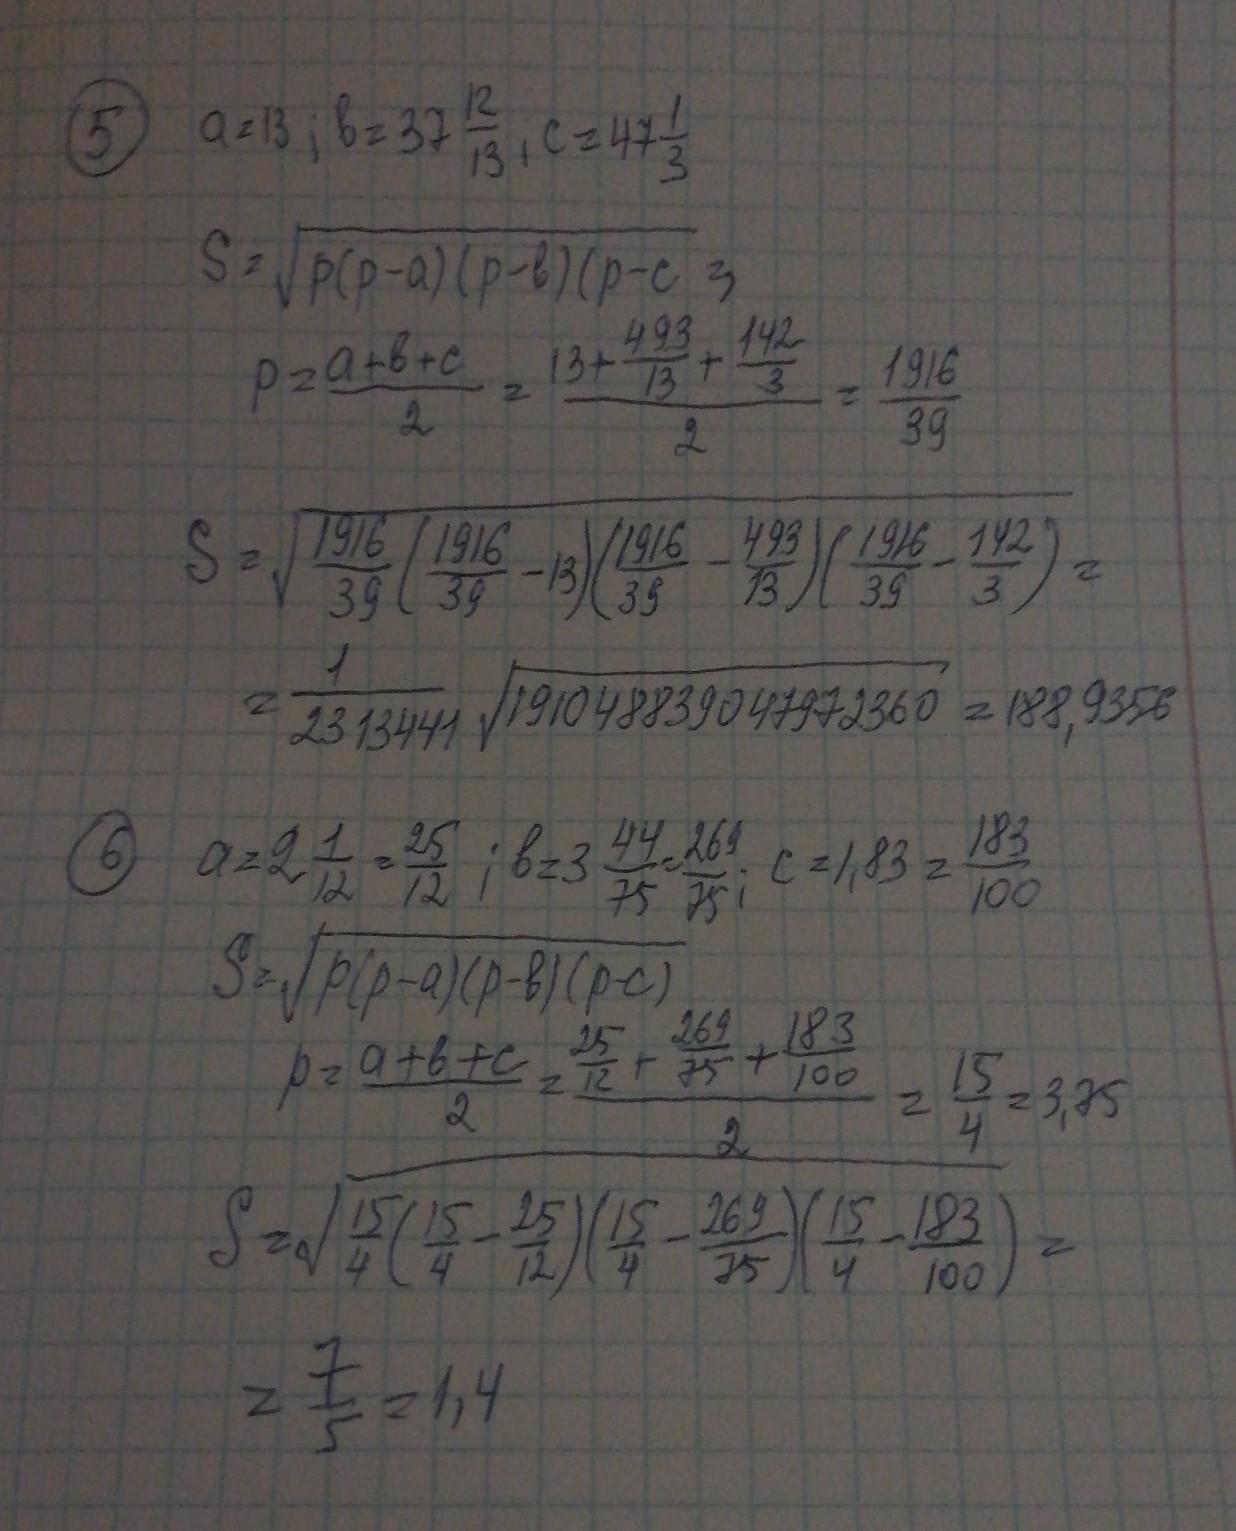 5 a=13; в=37 12/13; c=47 1/3
S=√p(p-a)(p-в)(p-c =
p=(a+в+c)/2 = (13+493/13+142/3)/2 = 1916/39
S=√(1916/39(1916/39-13)(1916/39-493/13)(1916/39-142/3)) =
= 1/2313441 √191048839047972360 = 188,9356
6 a=2 1/12 = 25/12; в=3 44/75 = 269/75; c=1,83 = 183/100
S=√p(p-a)(p-в)(p-c)
p=(a+в+c)/2 = (25/12+269/75+183/100)/2 = 15/4 = 3,75
S=√(15/4(15/4-25/12)(15/4-269/75)(15/4-183/100)) =
= 7/5 = 1,4